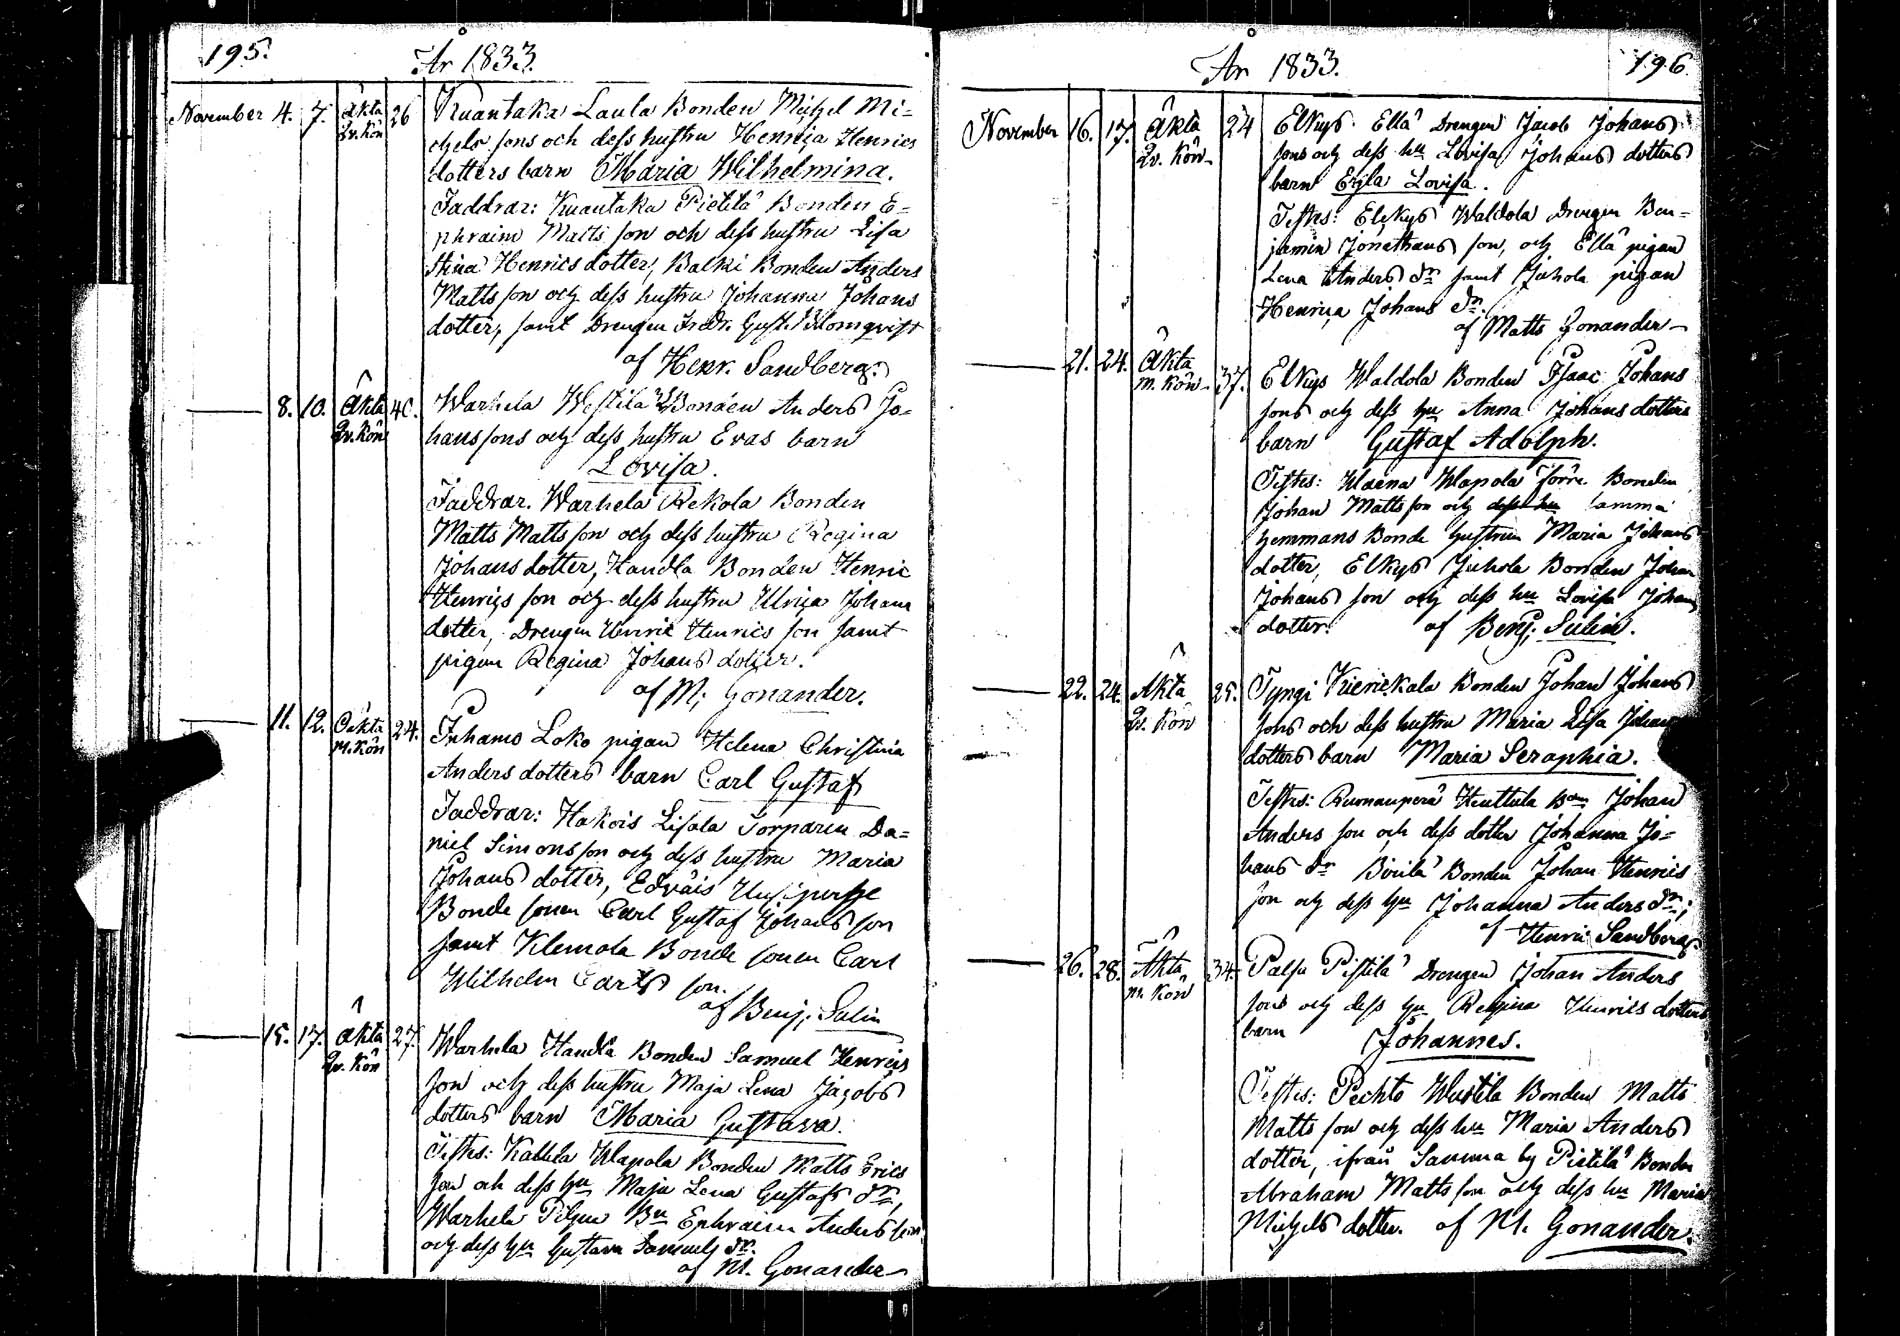 195. År 1833.
November 4. 7. äkta Qv. Kön 26 Kuantaka Laula Bonden Michel Mi=
chels sons och dess hustru Henrica Henrics
dotters barn Maria Wilhelmina.
Faddrar: Kuantaka Pietilä Bonden E=
phraim Matts son och dess hustru Lisa
Stina Henrics dotter, Balki Bonden Anders
Matts son och dess hustru Johanna Johans
dotter, samt Drengen Gust. Blomqvist
af Henr. Sandberg.
8. 10. Äkta Qv. Kön 40. Warhela Westilä Bonden Anders Jo=
hans sons och dess hustru Evas barn
Lovisa.
Faddrar. Warhela Rekola Bonden
Matts Matts son och dess hustru Regina
Johans dotter, Handla Bonden Henric
Henrics son och dess hustru Ulrica Johans
dotter, Drengen Henric Henrics son samt
pigan Regina Johans dotter.
af M: Gonander.
11. 12. Oäkta M. Kön 24. Inhamo Loko pigan Helena Christina
Anders dotters barn Carl Gustaf
Faddrar: Hakois Lisala Torparen Da=
niel Simons son och dess hustru Maria
Johans dotter, Edväis
Bonde sonen Carl Gustaf Johans son
samt Klemola Bonde sonen Carl
Wilhelm Carls son.
af Benj. Salin
15. 17. Äkta Qv. Kön 27. Warhela Handla Bonden Samuel Henrics
son och dess hustru Maja Lena Jacobs
dotters barn Maria Gustava.
Testes: Kallela Wapola Bonden Matts Erics
son och dess hu Maja Lena Gustafs dr,
Warhela Bn Ephraim Anders son
och dess hu Gustava Samuels dr.
af M. Gonander
År 1833. 196.
November 16. 17. Äkta Qv. Kön 24 Elkys Ellä Drengen Jacob Johans
sons och dess hu Lovisa Johans dotters
barn Lovisa.
Testes: Elkys Waldola Drengen Ben=
jamin Jonathans son, och Ellä pigan
Lena Anders dr samt Juhola pigan
Henrica Johans dr.
af Matts Gonander
21. 24. Äkta M. Kön 37. Elkys Waldola Bonden Isaac Johans
sons och dess hu Anna Johans dotters
barn Gustaf Adolph.
Testes: Waena Wapola förre Bonden
Johan Matts son och dess hu samma
hemmans Bonde hustrun Maria Johans
dotter, Elkys Juhola Bonden Johan
Johans son och dess hu Lovisa Johans
dotter. af Benj: Salin.
22. 24. Äkta Qv. Kön 25. Tyngi Kierickala Bonden Johan Johans
sons och dess hustru Maria Lisa Johans
dotters barn Maria Seraphia.
Testes: Ruonanperä Huttula Bon Johan
Anders son och dess dotter Johanna Jo=
hans dr Birilä Bonden Johan Henrics
son och dess hu Johanna Anders dr;
af Henric Sandberg.
26. 28. Äkta M. Kön 34. Palsu Pistilä Drengen Johan Anders
sons och dess hu Regina Henrics dotters
barn Johannes.
Testes: Pechto Westilä Bonden Matts
Matts son och dess hu Maria Anders
dotter, ifrån Samma by Pietilä Bonden
Abraham Matts son och dess hu Maria
Michels dotter. af M. Gonander.